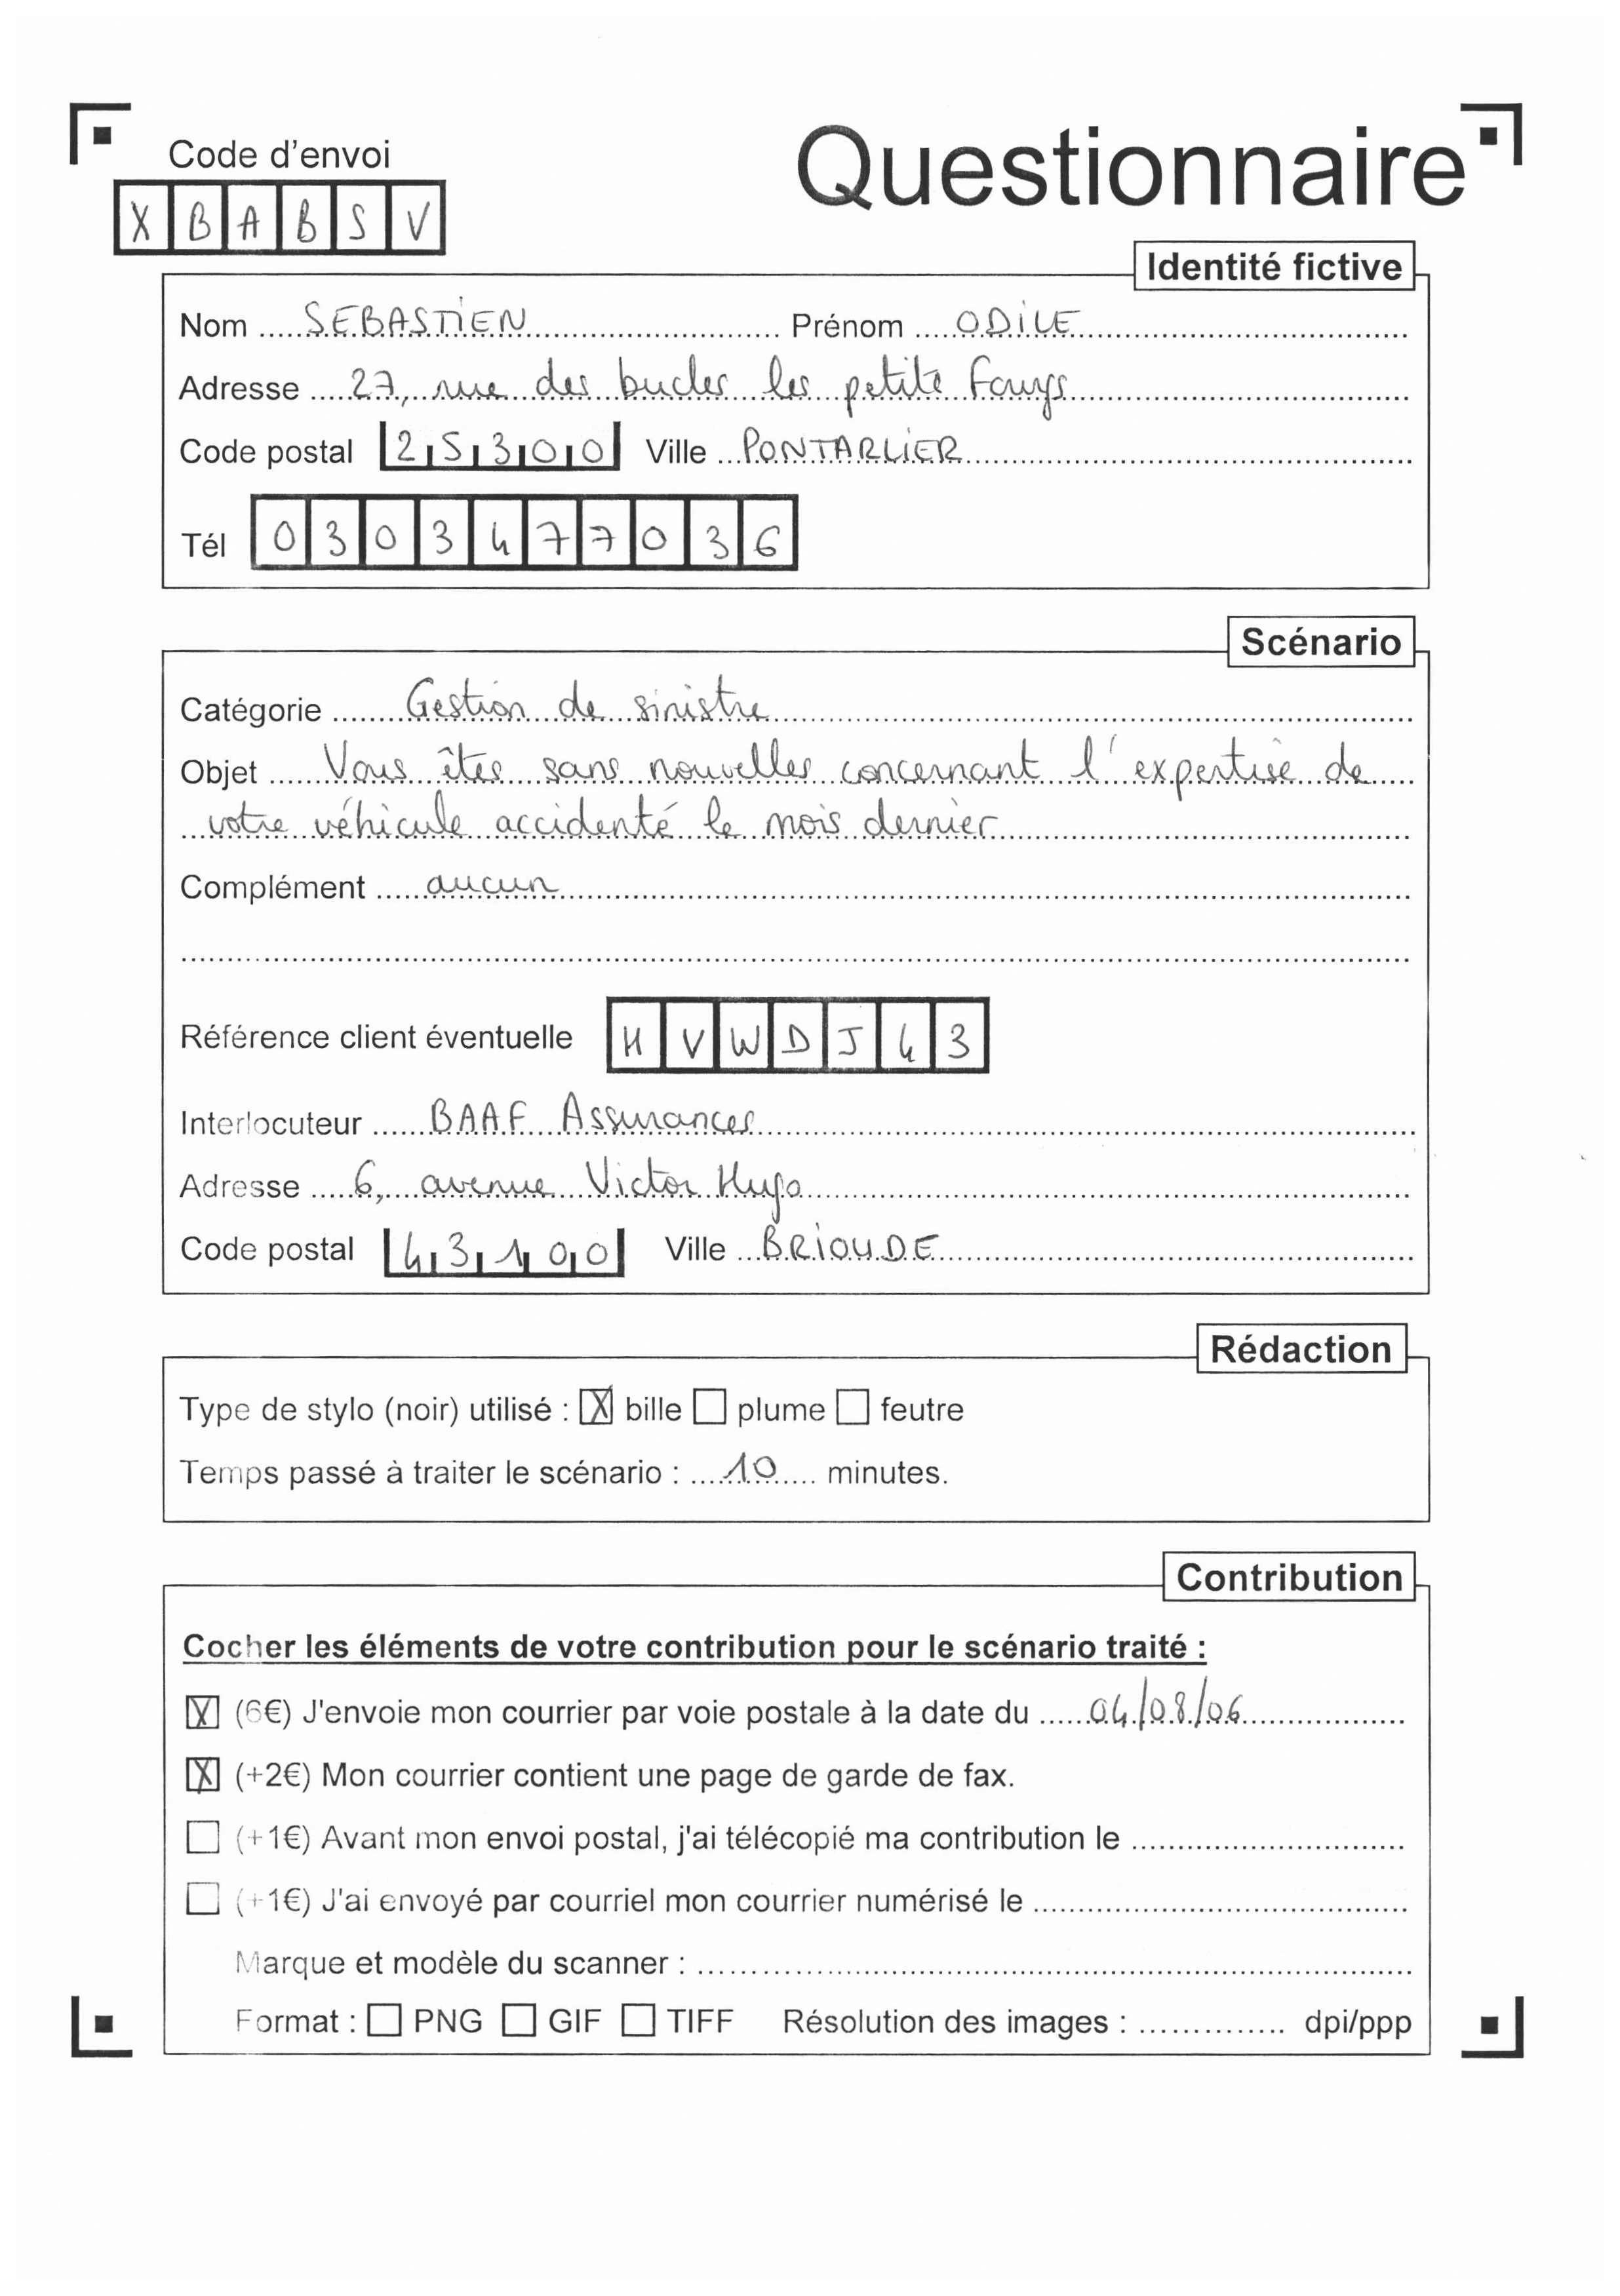 Code d'envoi
Questionnaire
X B A B S V
Identité fictive
Nom ..... SEBASTIEN ..... Prénom ..... ODILE .....
Adresse ..... 27, rue des bucles les petits Fougs .....
Code postal 25300 Ville ... PONTARLIER .....
Tél 0303477036
Scénario
Catégorie ..... Gestion de sinistre .....
Objet ..... Vous êtes sans nouvelles concernant l'expertise de
votre véhicule accidenté le mois dernier .....
Complément ..... aucun .....
Référence client éventuelle HVWDJ43
Interlocuteur ..... BAAF Assurances .....
Adresse ..... 6, avenue Victor Hugo .....
Code postal 43100 Ville ... BRIOUDE .....
Rédaction
Type de stylo (noir) utilisé : ☒ bille ☐ plume ☐ feutre
Temps passé à traiter le scénario : .... 10 .... minutes.
Contribution
Cocher les éléments de votre contribution pour le scénario traité :
☒ (6€) J'envoie mon courrier par voie postale à la date du ..... 04/08/06 .....
☒ (+2€) Mon courrier contient une page de garde de fax.
☐ (+1€) Avant mon envoi postal, j'ai télécopié ma contribution le .....
☐ (+1€) J'ai envoyé par courriel mon courrier numérisé le .....
Marque et modèle du scanner : .....
Format : ☐ PNG ☐ GIF ☐ TIFF Résolution des images : ..... dpi/ppp